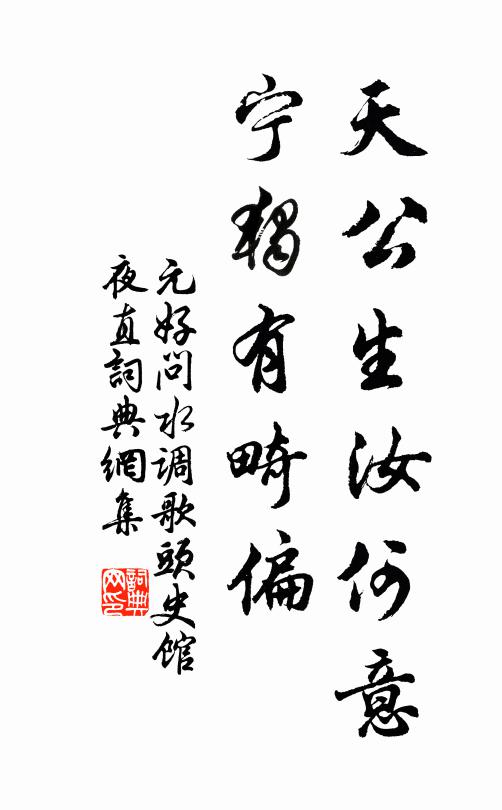 天公生汝何意
宁獨有畸偏
元好问水调歌頭史馆
夜直詞典網集
詞典网印